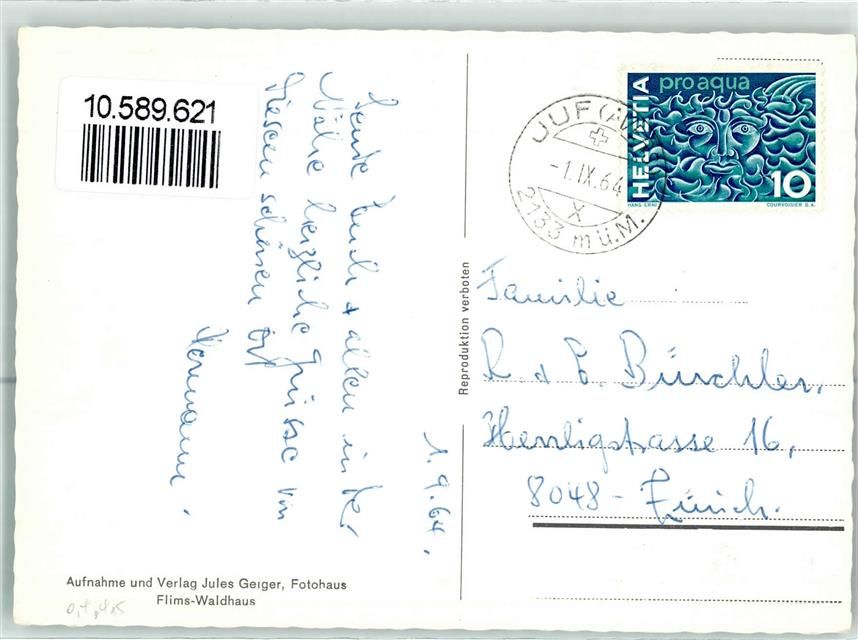 10.589.621
1.9.64.
Sende Euch + allen in der
Nähe herzliche Grüsse von
diesem schönen Ort
Hermann.
Aufnahme und Verlag Jules Geiger, Fotohaus
Flims-Waldhaus
Reproduktion verboten
JUF (AV
-1.IX.64
X
2133 m ü.M.
HELVETIA
pro aqua
10
HANS ERNI
COURVOISIER S.A.
Familie
R. + E. Bürchler,
Herrligstrasse 16,
8048 - Zürich.